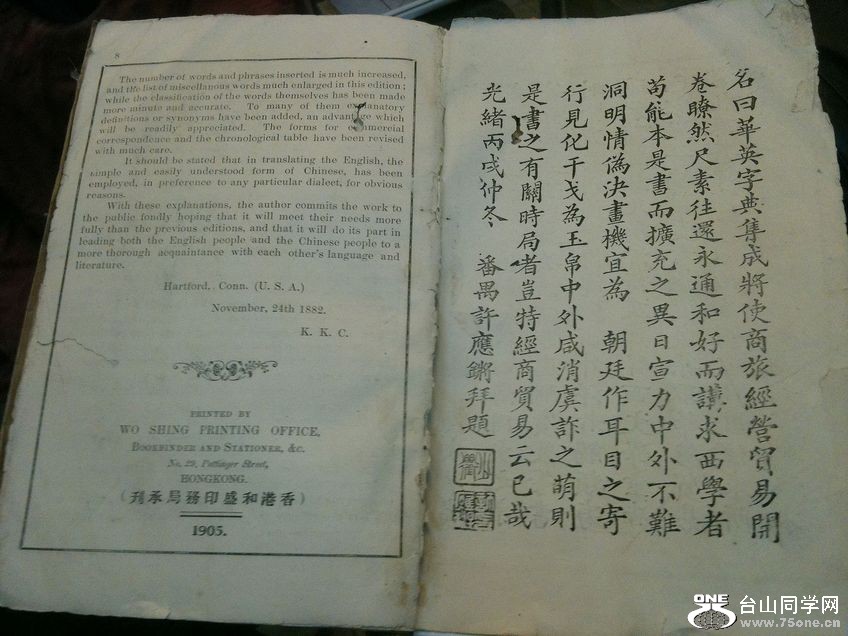 8
The number of words and phrases inserted is much increased,
and the list of miscellaneous words much enlarged in this edition;
while the classification of the words themselves has been made
more minute and accurate. To many of them explanatory
definitions or synonyms have been added, an advantage which
will be readily appreciated. The forms for commercial
correspondence and the chronological table have been revised
with much care.
It should be stated that in translating the English, the
simple and easily understood form of Chinese, has been
employed, in preference to any particular dialect, for obvious
reasons.
With these explanations, the author commits the work to
the public fondly hoping that it will meet their needs more
fully than the previous editions, and that it will do its part in
leading both the English people and the Chinese people to a
more thorough acquaintance with each other's language and
literature.
Hartford, Conn. (U. S. A.)
November, 24th 1882.
K. K. C.
PRINTED BY
WO SHING PRINTING OFFICE,
BOOKBINDER AND STATIONER, &C.
No. 29, Pottinger Street,
HONGKONG.
(香港和盛印務局承刊)
1905.
名曰華英字典集成將使商旅經營貿易開
卷瞭然尺素往還永通和好而講求西學者
苟能本是書而擴充之異日宣力中外不難
洞明情偽決畫機宜為 朝廷作耳目之寄
行見化干戈為玉帛中外咸消虞詐之萌則
是書之有關時局者豈特經商貿易云已哉
光緒丙戌仲冬 番禺許應鏘拜題
ONE 台山同学网
www.75one.cn